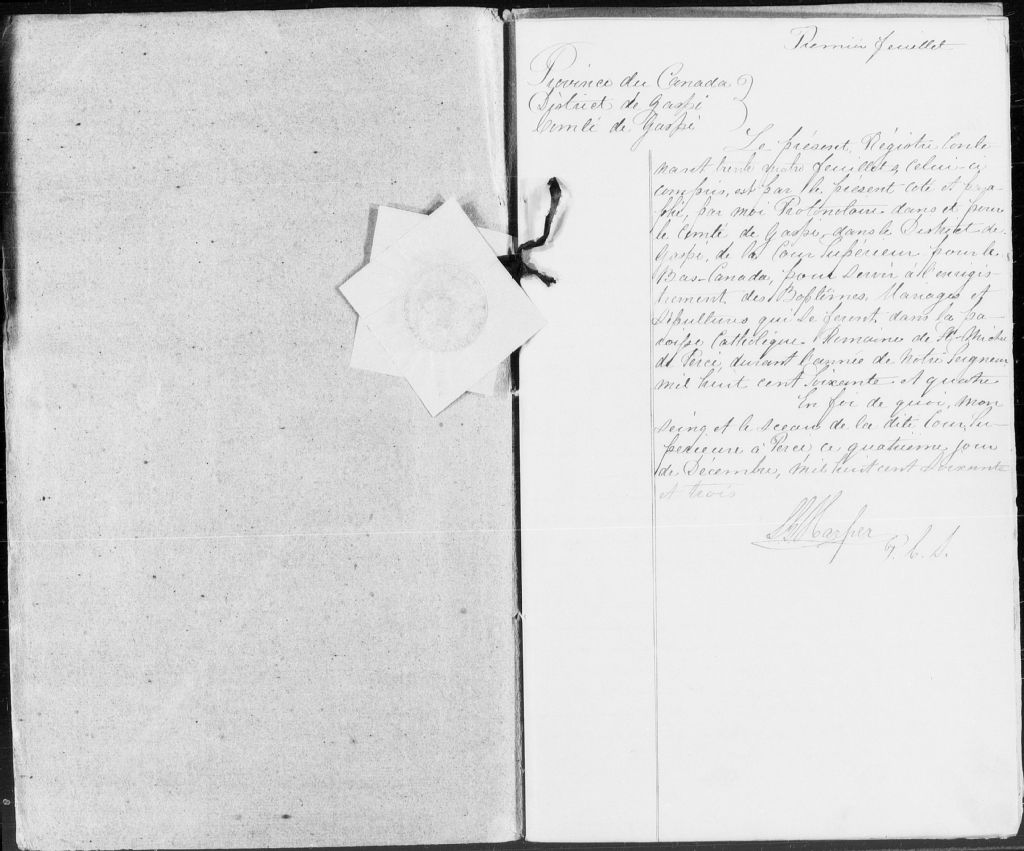 Premier feuillet
Province du Canada
District de Gaspé
Comté de Gaspé
Le présent Régistre Conte-
nant trente quatre feuillets, Celui-ci
compris, est par le présent coté et para-
phé, par moi Protonotaire dans et pour
le Comté de Gaspé, dans le District de
Gaspé, de la Cour Supérieure pour le
Bas-Canada, pour servir à l'enregis-
trement des Baptêmes, Mariages et
Sépultures qui se feront dans la pa-
roisse Catholique Romaine de St. Michel
de Percé, durant l'année de Notre Seigneur
mil huit cent soixante et quatre
En foi de quoi, mon
seing et le sceau de la dite Cour Su-
périeure à Percé ce quatrième jour
de Décembre, mil huit cent soixante
et trois
Harper
P. C. S.